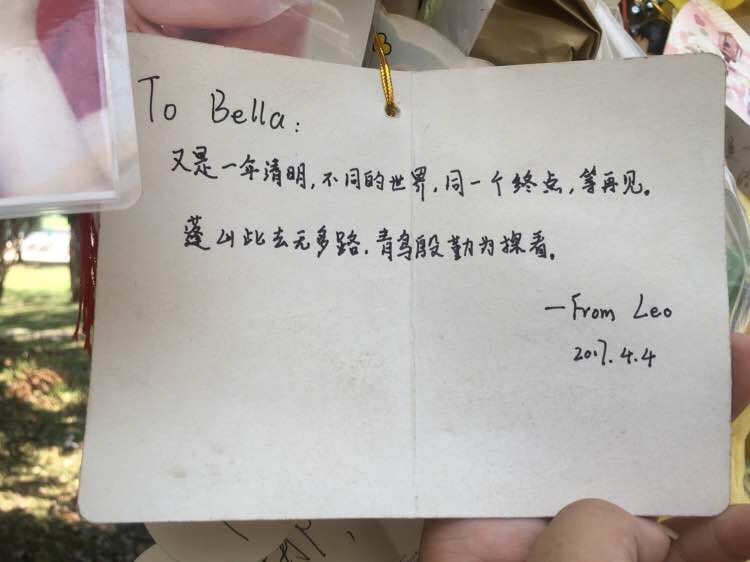 To Bella:
又是一年清明,不同的世界,同一个终点,等再见。
蓬山此去无多路,青鸟殷勤为探看。
—From Leo
2017.4.4